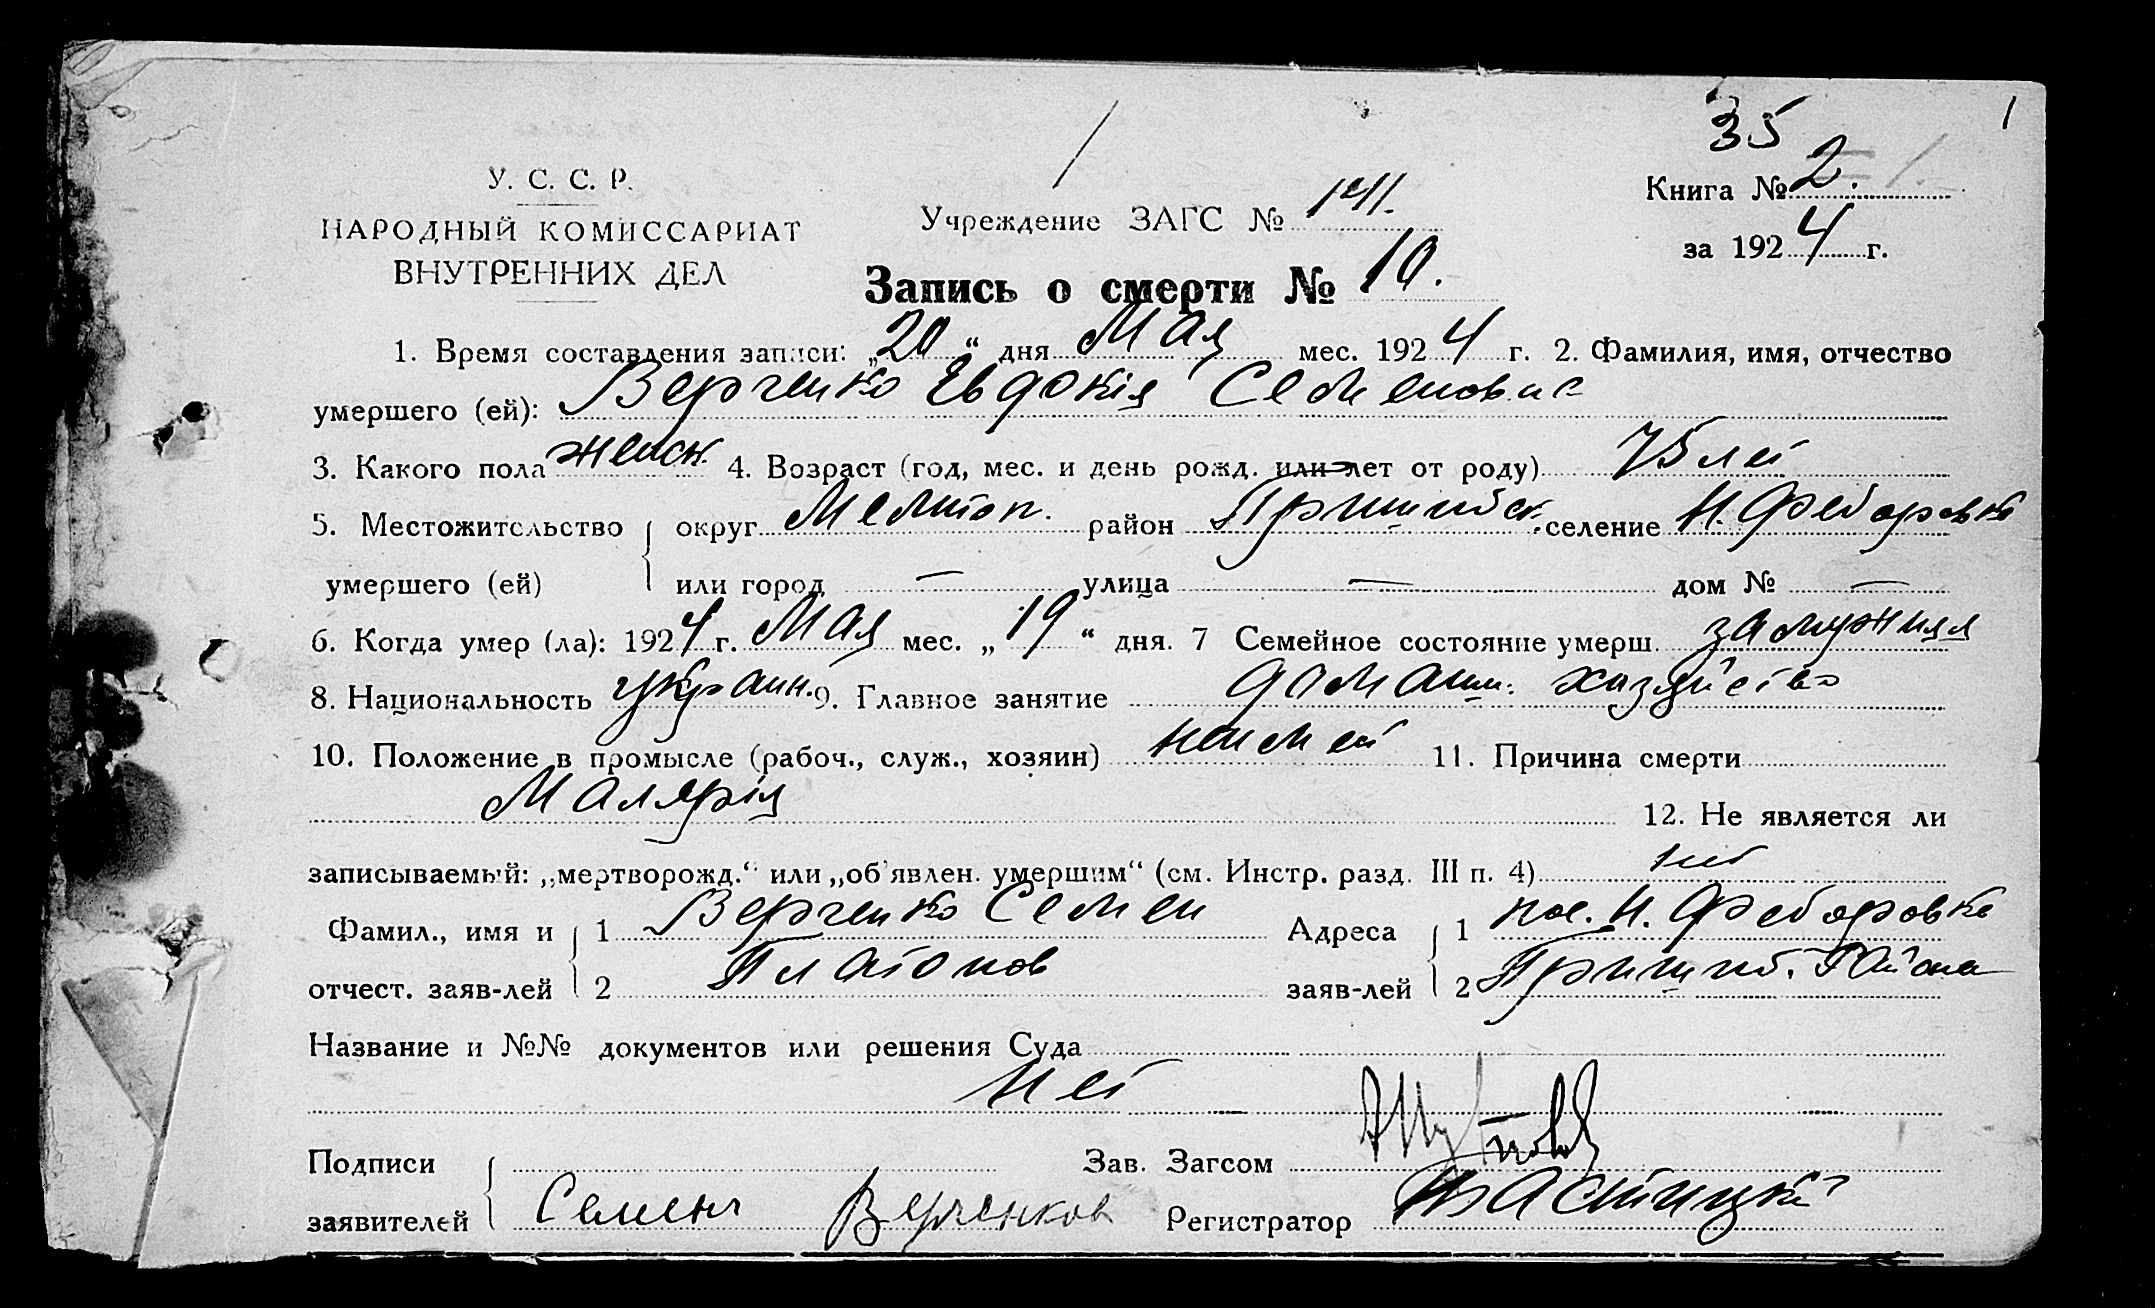 35
1
У. С. С. Р.
НАРОДНЫЙ КОМИССАРИАТ
ВНУТРЕННИХ ДЕЛ
Учреждение ЗАГС №
Книга № 2.
за 1924 г.
Запись о смерти № 10.
1. Время составления записи: „20“ дня Мая мес. 1924 г. 2. Фамилия, имя, отчество
умершего (ей): Верченко Евдокія Семеновна
3. Какого пола женск. 4. Возраст (год, мес. и день рожд. или лет от роду) 75 лет
5. Местожительство округ Мелитоп. район Пришибск. селение Н. Федоровка
умершего (ей) или город — улица — дом № —
6. Когда умер (ла): 1924 г. Мая мес. „19“ дня. 7 Семейное состояние умерш. замужняя
8. Национальность украин. 9. Главное занятие домашн. хозяйство
10. Положение в промысле (рабоч., служ., хозяин) 11. Причина смерти
Малярія
12. Не является ли
записываемый: „мертворожд.“ или „об'явлен. умершим“ (см. Инстр. разд. III п. 4) нет
Фамил., имя и 1 Верченко Семен Адреса 1 пос. Н. Федоровка
отчест. заяв-лей 2 Платонов заяв-лей 2 Пришиб. Района
Название и №№ документов или решения Суда
Нет
Подписи Зав. Загсом
заявителей Семенъ Верченков Регистратор